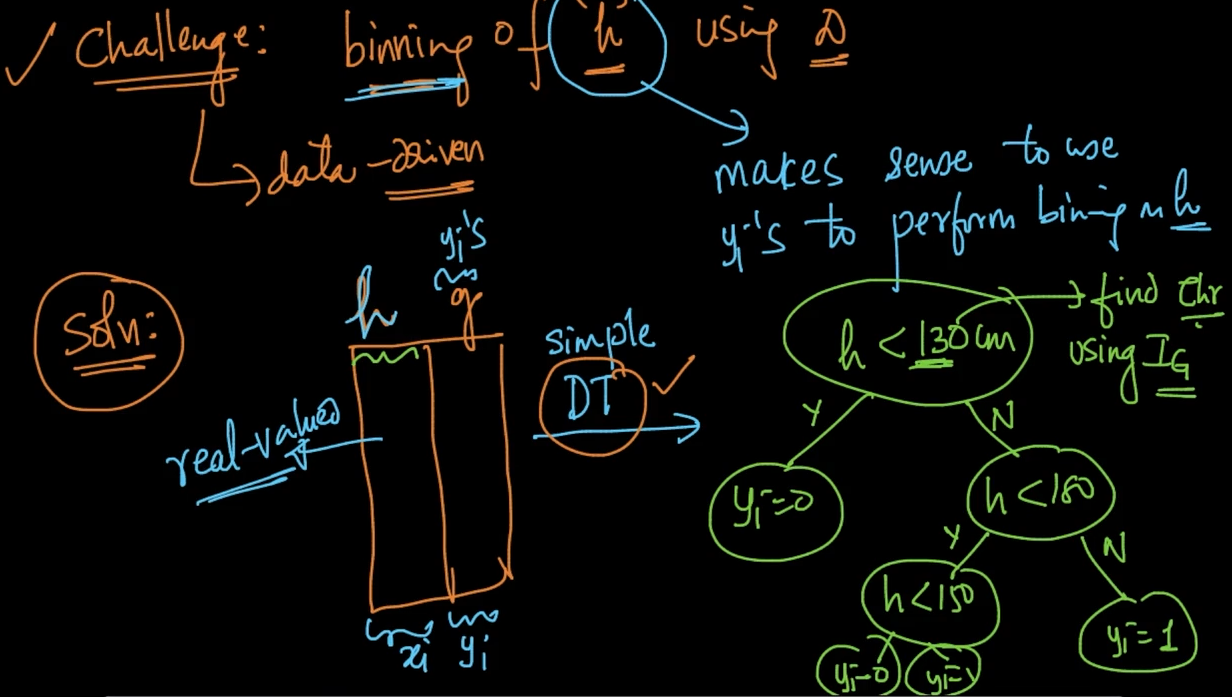 ✓ Challenge: binning of 'h' using D
→ data-driven
makes sense to use
yi's to perform bining h
yi's
h g
Soln:
simple
DT ✓
real-valued
xi yi
h < 130 cm
→ find thr
using IG
Y N
yi=0
h < 180
Y N
h < 150
yi = 1
yi=0 yi=1